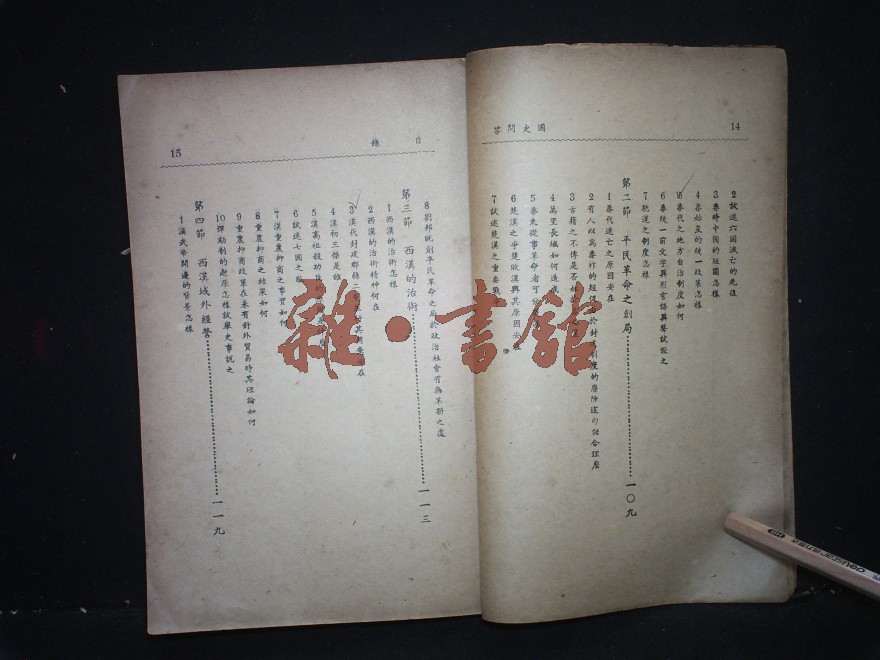 14
國史問答
2 試述六國滅亡的先後
3 秦時中國的版圖怎樣
4 秦始皇的統一政策怎樣
5 秦代之地方自治制度如何
6 秦統一前文字異形言語異聲試說之
7 馳道之制度怎樣
第二節 平民革命之創局 一〇九
1 秦代速亡之原因安在
2 有人以為秦祚的短促由於封建制度的廢除這句話合理麼
3 古籍之不傳是否
4 萬里長城如何造成
5 秦末從事革命者可
6 楚漢之爭楚敗漢興其原因安在
7 試述楚漢之重要戰
目錄
15
8 劉邦既創平民革命之局於政治社會有無革新之處
第三節 西漢的治術 一一三
1 西漢的治術怎樣
2 西漢的治術精神何在
3 漢代封建郡縣二
4 漢初三傑是誰
5 漢高祖殺功臣
6 試述七國之亂
7 漢重農抑商之事實如何
8 重農抑商之結果如何
9 重農抑商政策在未有對外貿易時其理論如何
10 彈劾制的起原怎樣試舉史事說之
第四節 西漢域外經營 一一九
1 漢武帝開邊的背景怎樣
雜·書館